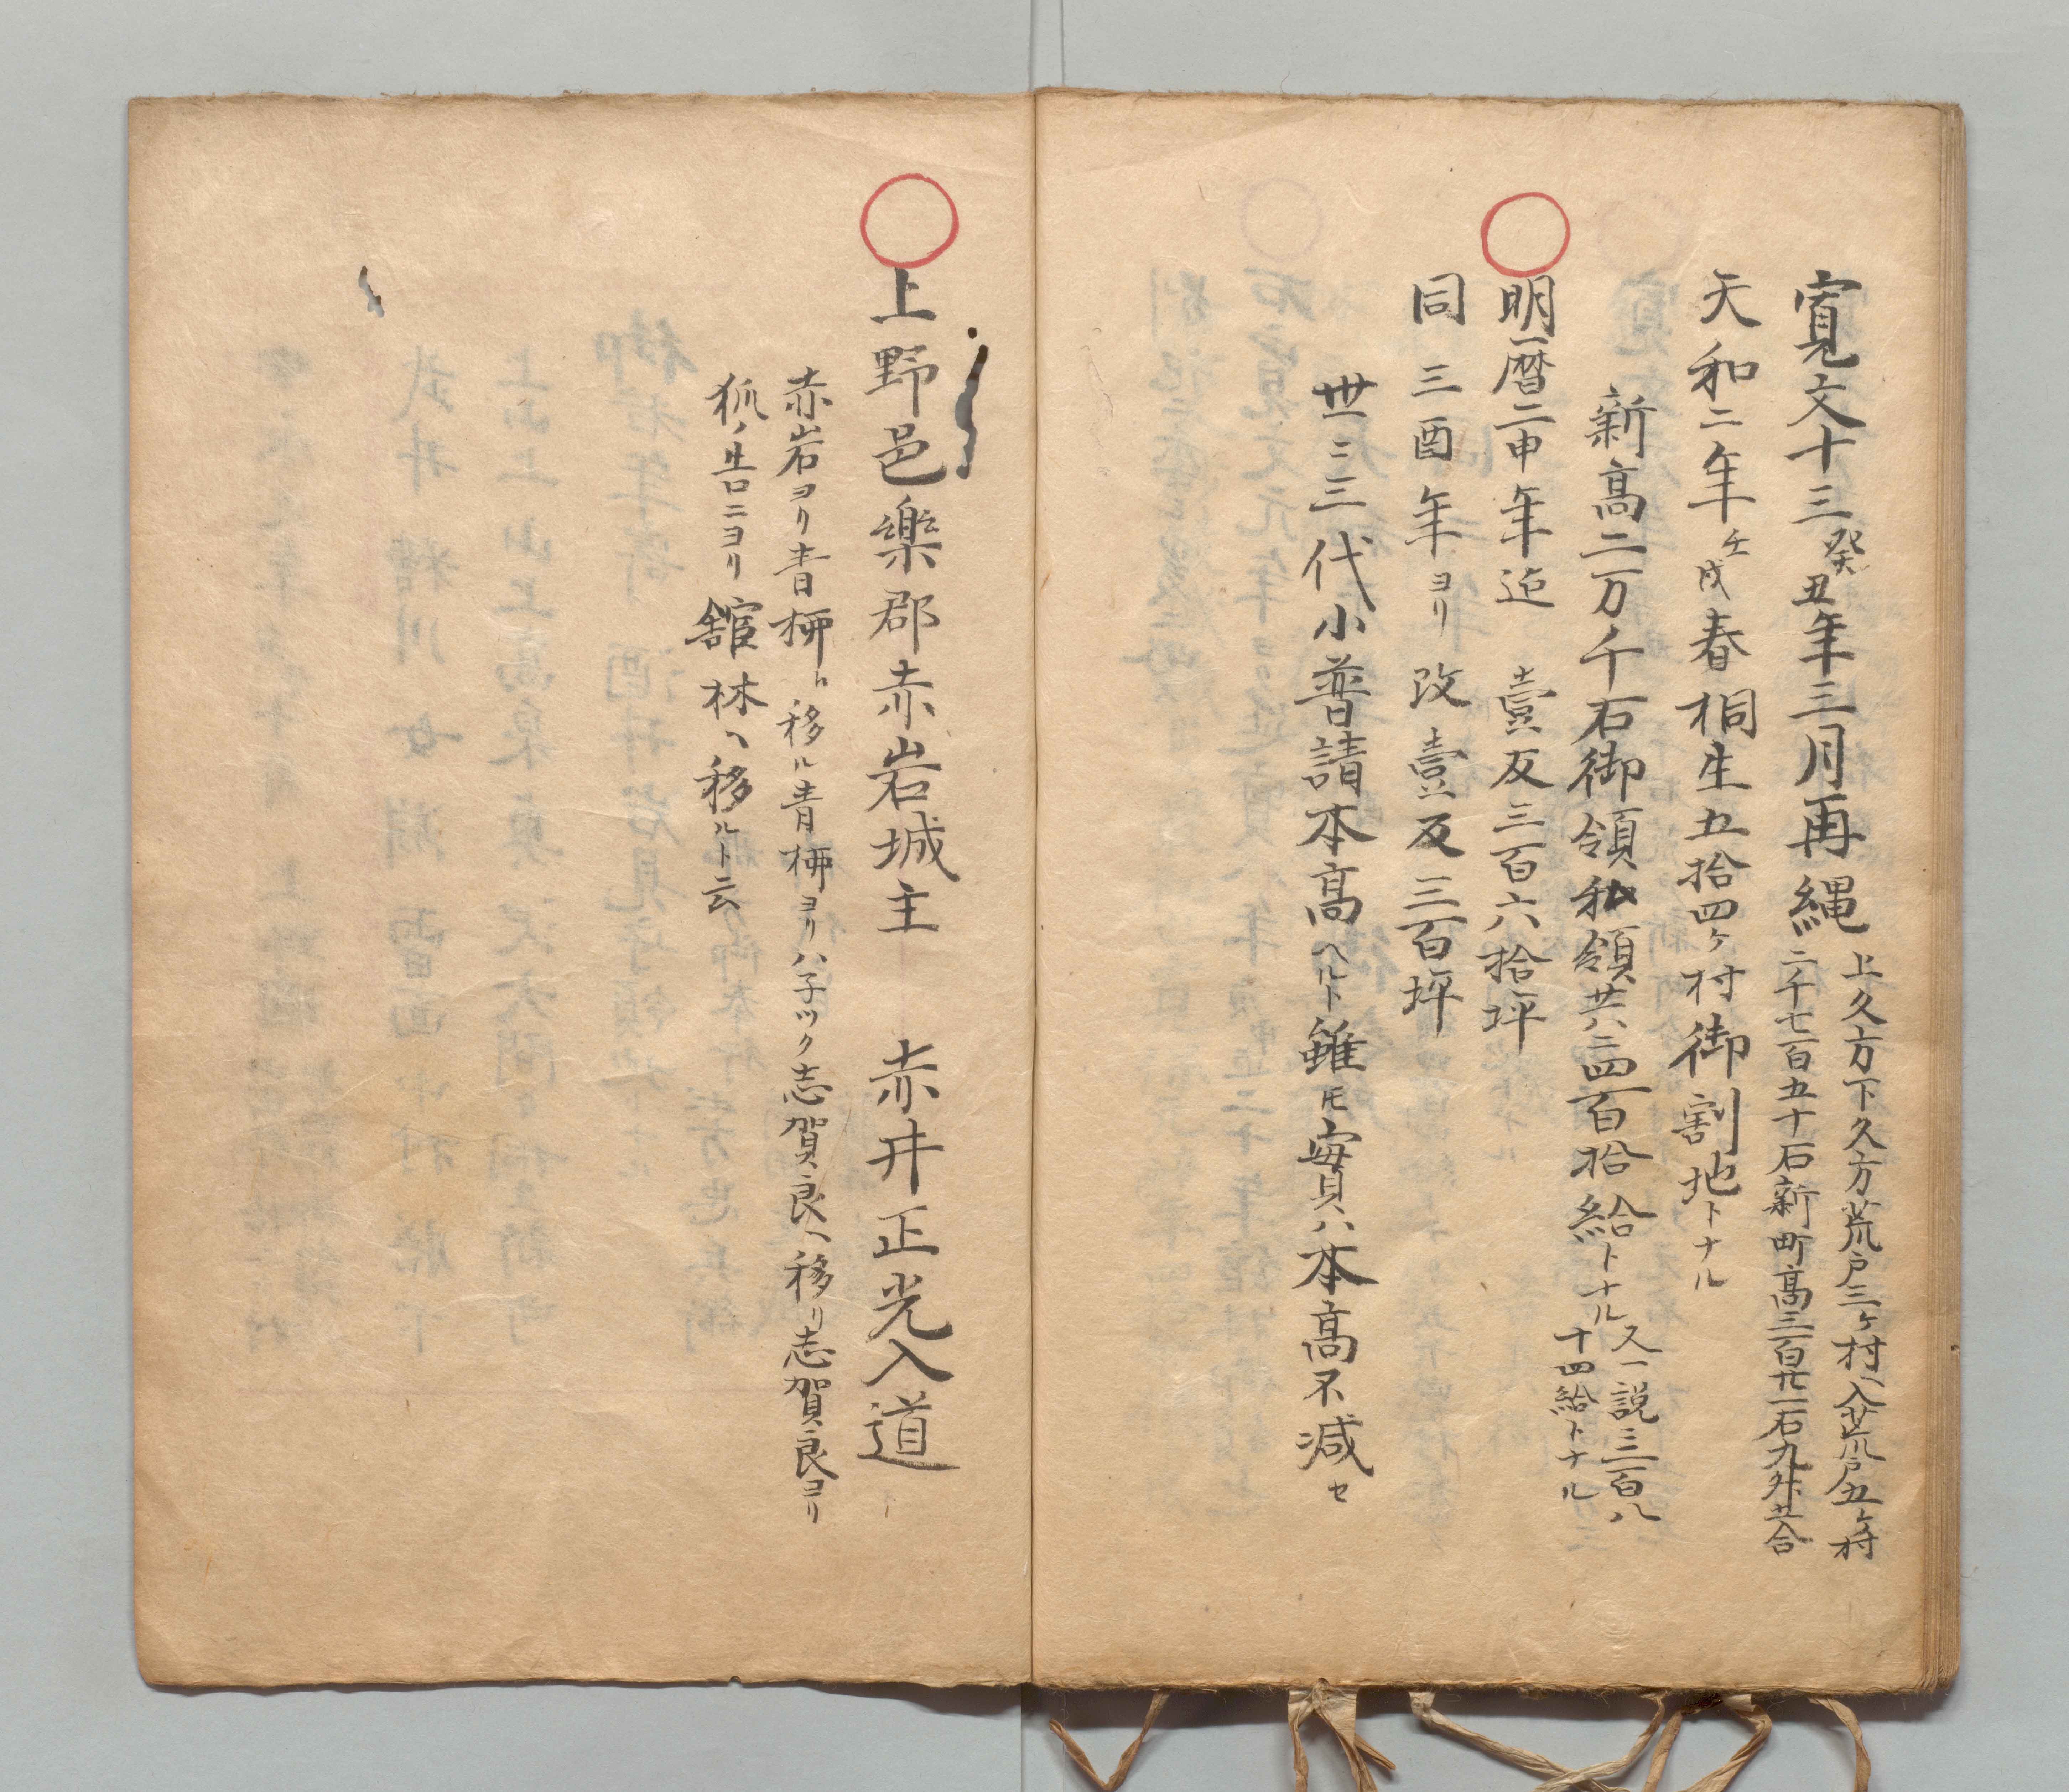 寛文十三癸丑年三月再縄
上久方下久方荒戸三ケ村入荒戸五ケ村
二千七百五十石新町高三百廿一石九外共合
天和二年壬戌春桐生五拾四ケ村御割地トナル
新高二万千石御領私領共ハ二四百拾給トナル
又一説三百八
十四給トナル
○明暦二申年迄 壹反三百六拾坪
同三酉年ヨリ改壹反三百坪
世ニ三代小普請本高ヘルト雖モ實ハ本高不減セ
○上野邑樂郡赤岩城主 赤井正光入道
赤岩ヨリ青栁ト移ル青栁ヨリハ子ツク志賀良ヘ移リ志賀良ヨリ
狐ノ告ロニヨリ舘林ヘ移ルト云